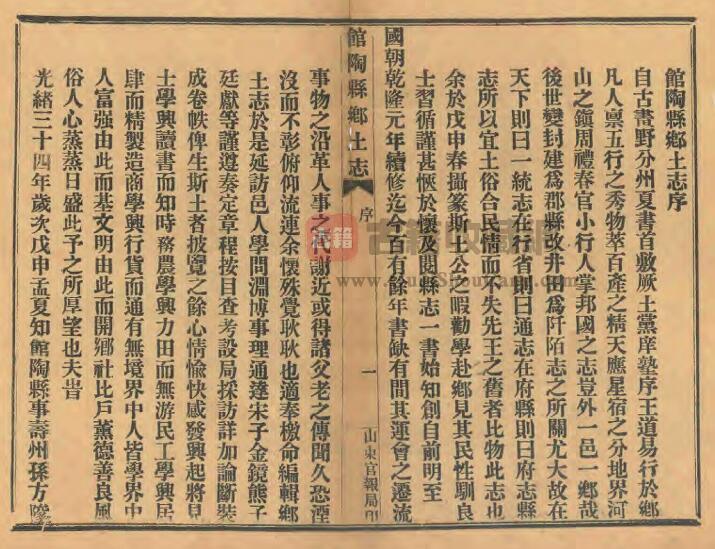 館陶縣鄉土志序
自古畫野分州夏書首敷厥土黨庠塾序王道易行於鄉
凡人禀五行之秀物萃百產之精天應星宿之分地界河
山之鎮周禮春官小行人掌邦國之志豈外一邑一鄉哉
後世變封建為郡縣改井田為阡陌志之所關尤大故在
天下則曰一統志在行省則曰通志在府縣則曰府志縣
志所以宜土俗合民情而不失先王之舊者比物此志也
余於戊申春攝篆斯土公之暇勸學赴鄉見其民性馴良
士習循謹甚愜於懷及閱縣志一書始知創自前明至
國朝乾隆元年續修迄今百有餘年書缺有間其運會之遷流
館陶縣鄉土志
序
一
山東官報局印
事物之沿革人事之代謝近或得諸父老之傳聞久恐湮
沒而不彰俯仰流連余懷殊覺耿耿也適奉檄命編輯鄉
土志於是延訪邑人學問淵博事理通達宋子金鏡熊子
廷獻等謹遵奏定章程按目查考設局採訪詳加論斷裝
成卷帙俾生斯土者披覽之餘心情愉快感發興起將見
士學興讀書而知時務農學興力田而無游民工學興居
肆而精製造商學興行貨而通有無境界中人皆學界中
人富強由此而基文明由此而開鄉社比戶薰德善良風
俗人心蒸蒸日盛此予之所厚望也夫旹
光緒三十四年歲次戊申孟夏知館陶縣事壽州孫方
古籍收藏網
www.GujiShouCang.com